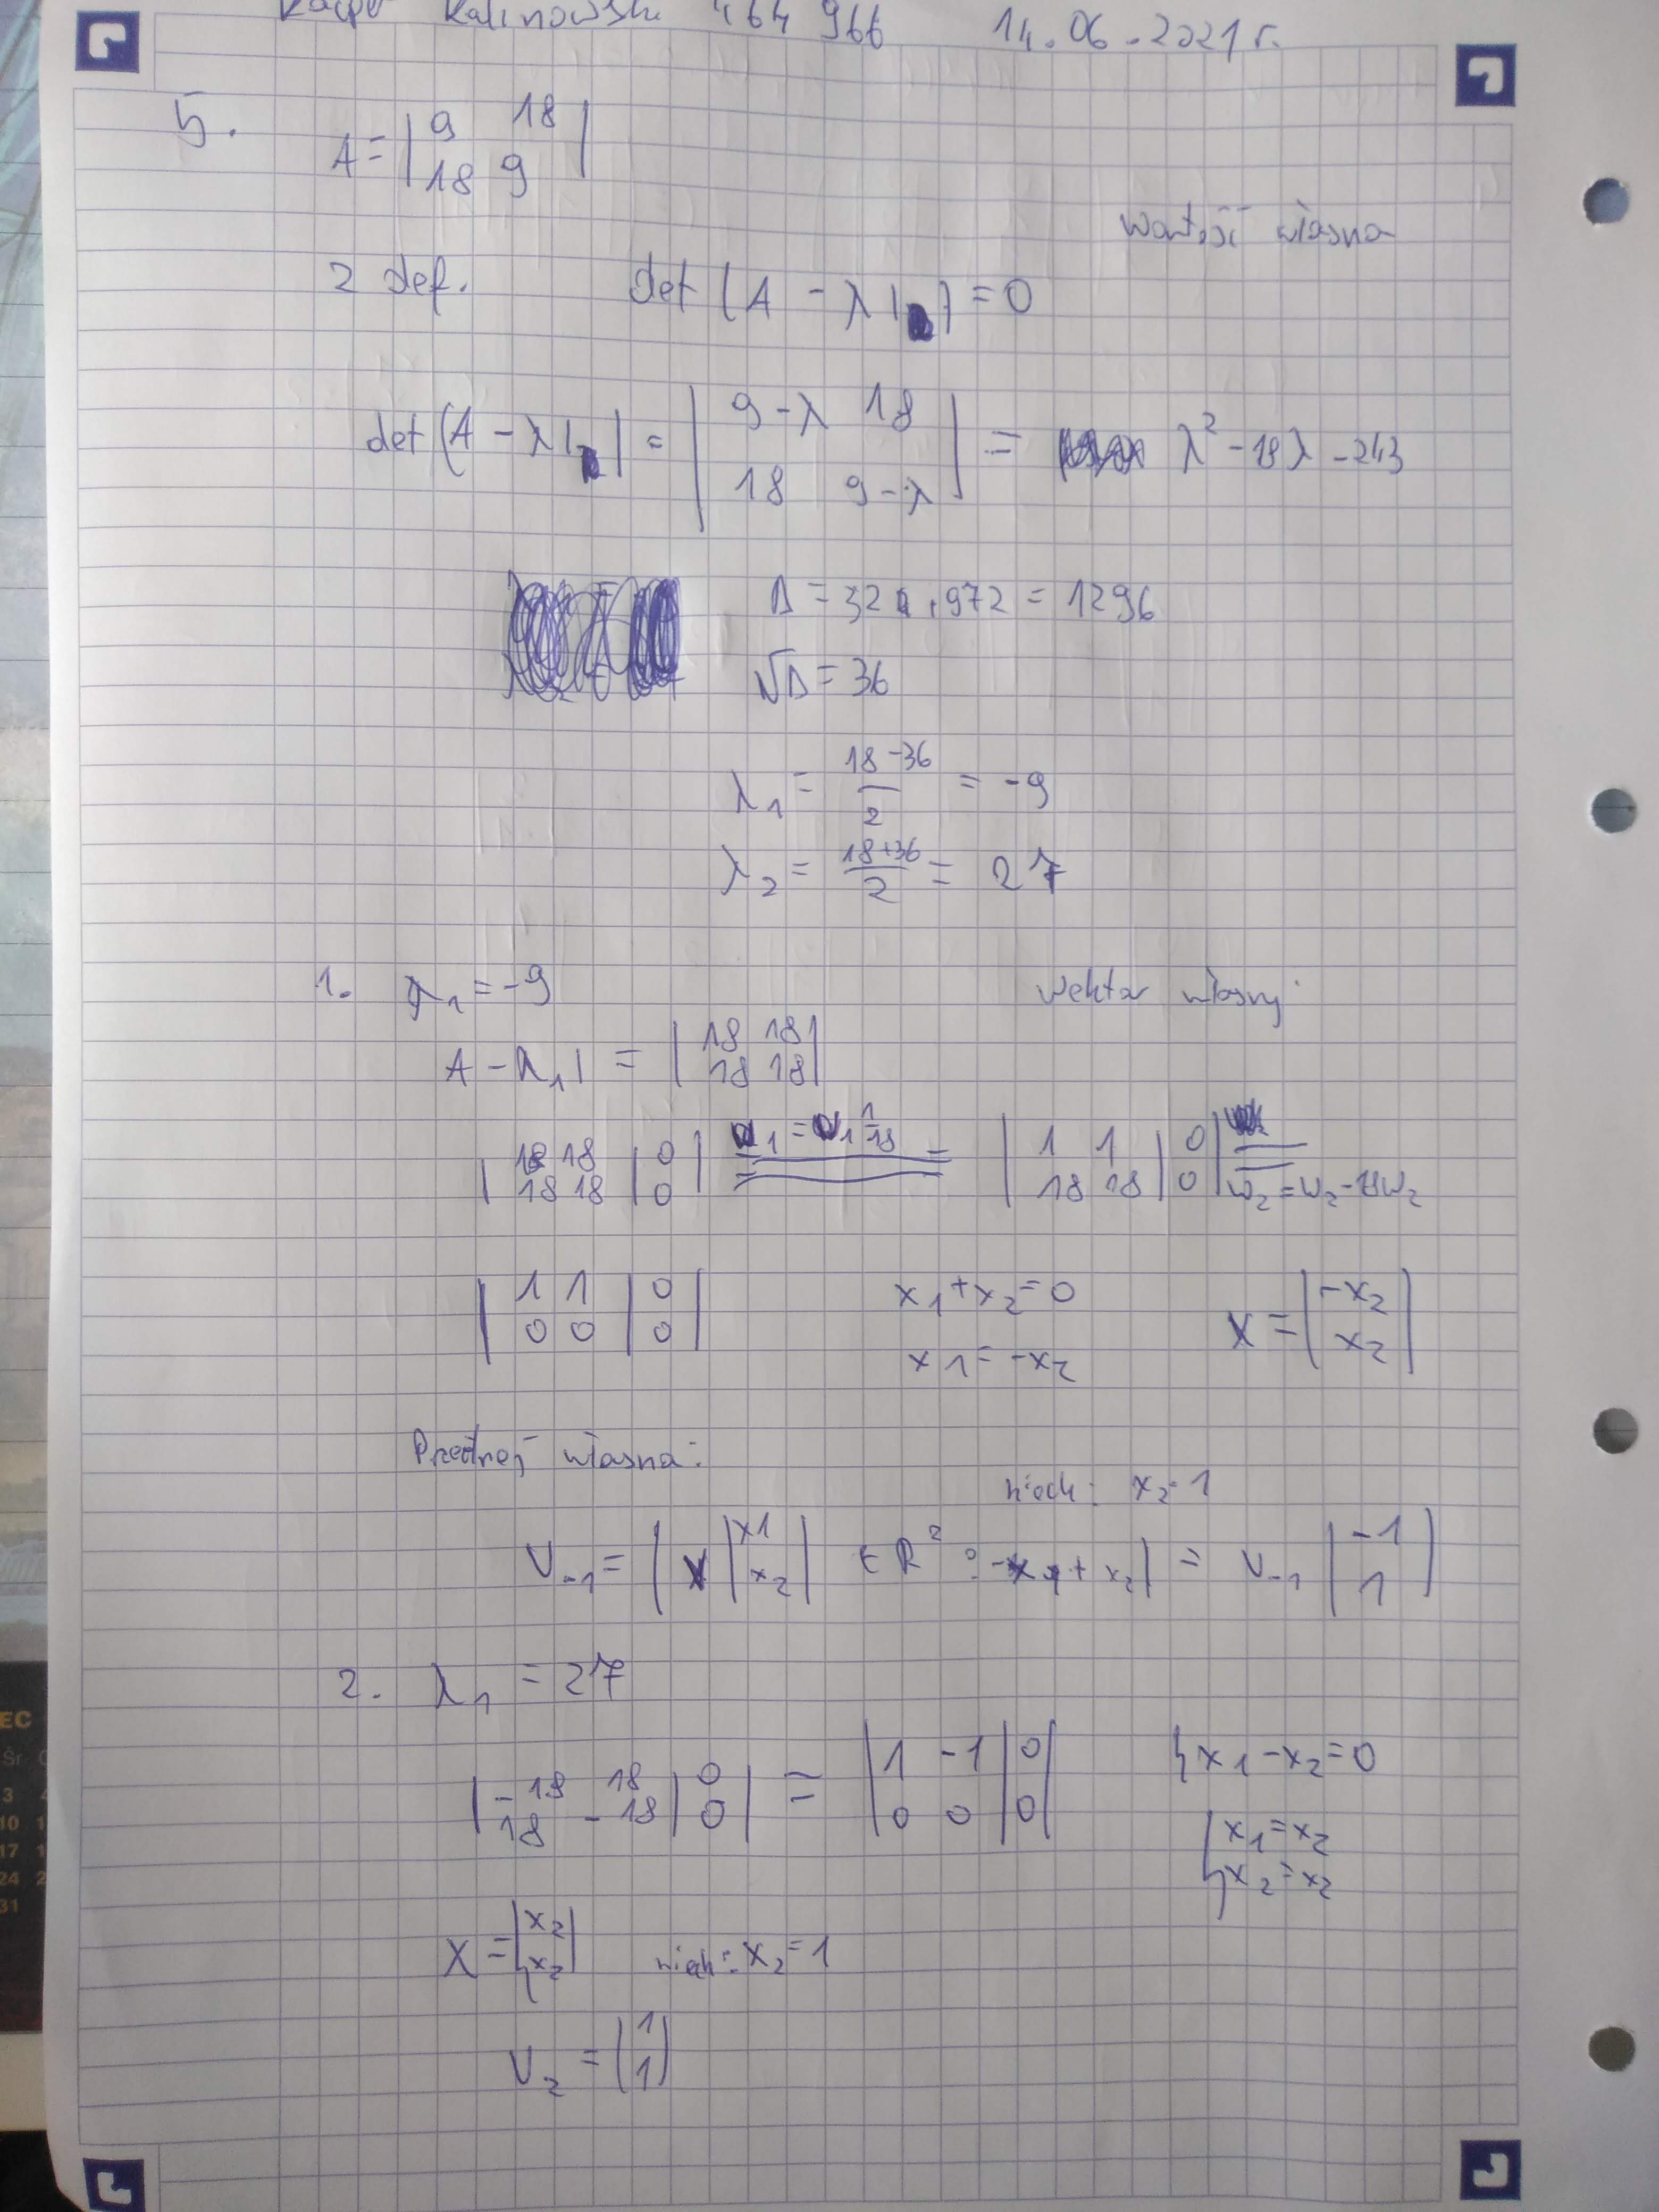 Kacper Kalinowski 464 966 14.06.2021 r.
5. A = | 9 18 |
| 18 9 |
wartość własna
z def. det (A - λI) = 0
det (A - λI | = | 9-λ 18 |
| 18 9-λ | = λ² - 18λ - 243
Δ = 324 + 972 = 1296
√Δ = 36
λ1 = 18-36 / 2 = -9
λ2 = 18+36 / 2 = 27
1. λ1 = -9 wektor własny
A - λ1 I = | 18 18 |
| 18 18 |
| 18 18 | 0 | w1 = w1 1/18 | 1 1 | 0 |
| 18 18 | 0 | | 18 18 | 0 | w2 = w2 - 18w2
| 1 1 | 0 | x1 + x2 = 0 X = | -x2 |
| 0 0 | 0 | x1 = -x2 | x2 |
Przestrzeń własna:
niech: x2 = 1
V-1 = | X | x1 | ∈ R² : -x1 + x2 | = V-1 | -1 |
| x2 | | 1 |
2. λ1 = 27
| -18 18 | 0 | = | 1 -1 | 0 | { x1 - x2 = 0
| 18 -18 | 0 | | 0 0 | 0 |
{ x1 = x2
x2 = x2
X = | x2 | niech: x2 = 1
| x2 |
V2 = ( 1 )
( 1 )
EC
Śr
3
10 1
17 1
24 2
31